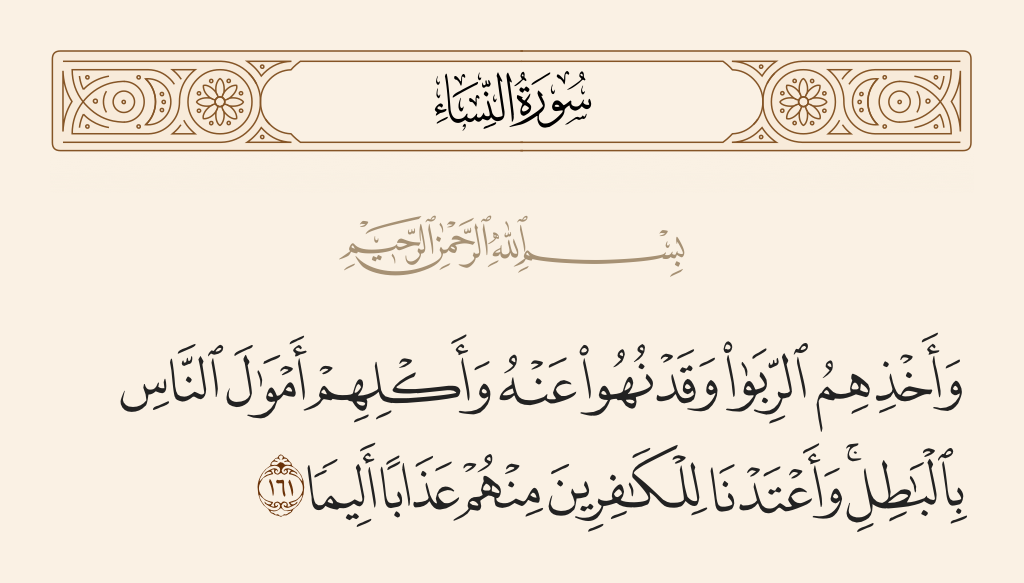 سُورَةُ النِّسَاءِ
بِسْمِ ٱللَّهِ ٱلرَّحْمَٰنِ ٱلرَّحِيمِ
وَأَخْذِهِمُ ٱلرِّبَوٰا۟ وَقَدْ نُهُوا۟ عَنْهُ وَأَكْلِهِمْ أَمْوَٰلَ ٱلنَّاسِ
بِٱلْبَٰطِلِ ۚ وَأَعْتَدْنَا لِلْكَٰفِرِينَ مِنْهُمْ عَذَابًا أَلِيمًا ١٦١